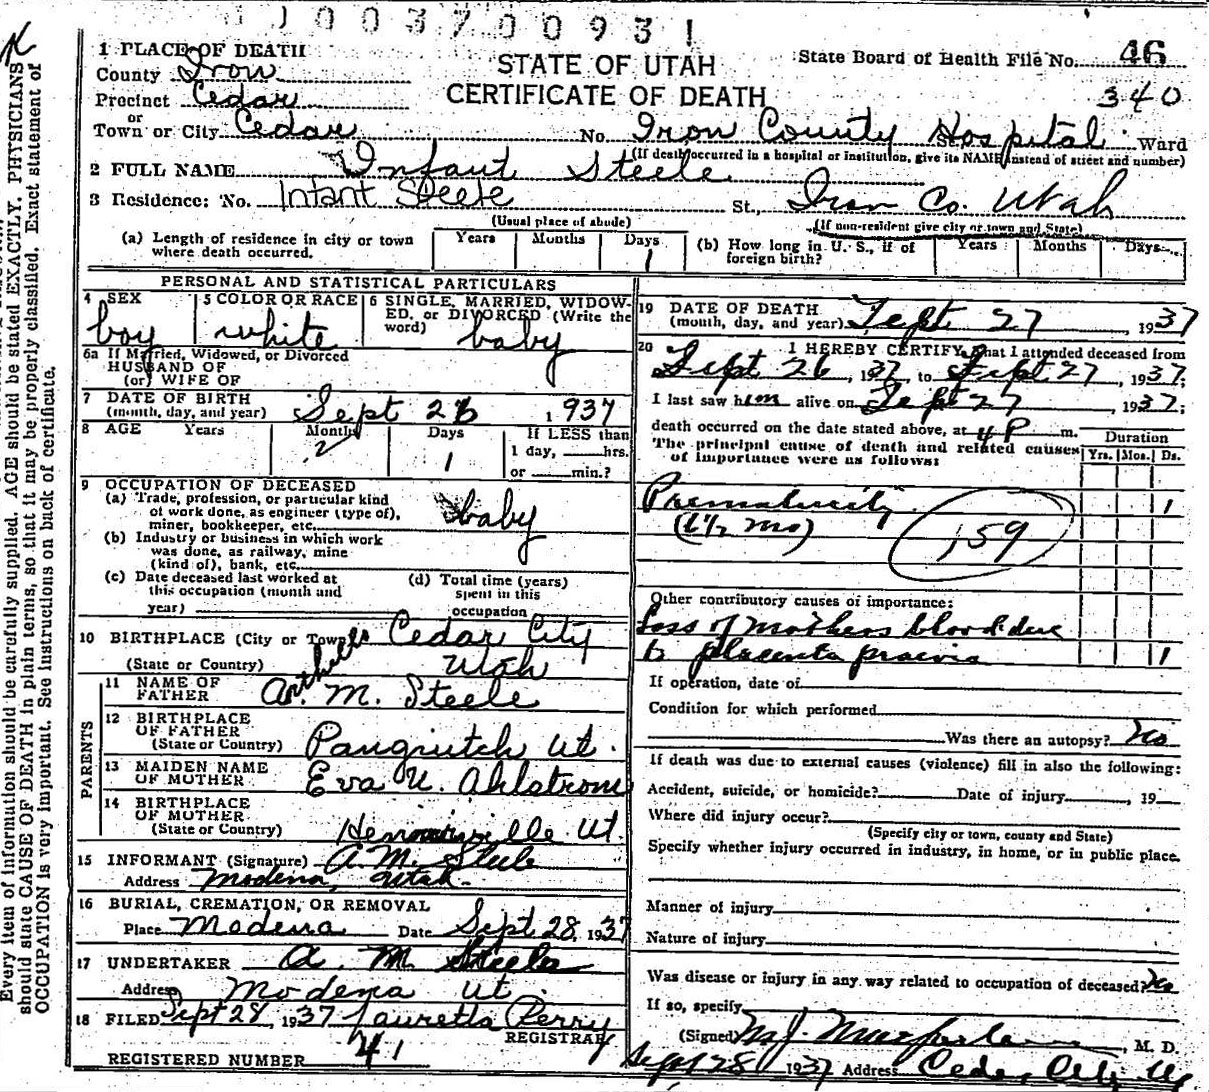 1003700931
1 PLACE OF DEATH
County Iron
Precinct Cedar
or
Town or City Cedar
STATE OF UTAH
CERTIFICATE OF DEATH
State Board of Health File No. 46
340
No. Iron County Hospital St. Ward
(If death occurred in a hospital or institution, give its NAME instead of street and number)
2 FULL NAME Infant Steele
3 Residence: No. Infant Steele St., Iron Co. Utah
(Usual place of abode) (If non-resident give city or town and State)
(a) Length of residence in city or town where death occurred. Years Months Days 1
(b) How long in U. S., if of foreign birth? Years Months Days
PERSONAL AND STATISTICAL PARTICULARS
4 SEX boy
5 COLOR OR RACE white
6 SINGLE, MARRIED, WIDOWED, or DIVORCED (Write the word) baby
6a If Married, Widowed, or Divorced
HUSBAND OF
(or) WIFE OF
7 DATE OF BIRTH
(month, day, and year) Sept 26 1937
8 AGE Years Months Days 1 If LESS than
1 day, hrs.
or min.?
9 OCCUPATION OF DECEASED
(a) Trade, profession, or particular kind
of work done, as engineer (type of),
miner, bookkeeper, etc. baby
(b) Industry or business in which work
was done, as railway, mine
(kind of), bank, etc.
(c) Date deceased last worked at
this occupation (month and
year)
(d) Total time (years)
spent in this
occupation
10 BIRTHPLACE (City or Town) Cedar City
(State or Country) Utah
PARENTS
11 NAME OF
FATHER A. M. Steele
12 BIRTHPLACE
OF FATHER
(State or Country) Panguitch Ut.
13 MAIDEN NAME
OF MOTHER Eva U. Ahlstrom
14 BIRTHPLACE
OF MOTHER
(State or Country) Henrieville Ut.
15 INFORMANT (Signature) A. M. Steele
Address Modena, Utah.
16 BURIAL, CREMATION, OR REMOVAL
Place Modena Date Sept 28, 1937
17 UNDERTAKER A. M. Steele
Address Modena Ut.
18 FILED Sept 28, 1937 Lauretta Perry
REGISTRAR
REGISTERED NUMBER 41
19 DATE OF DEATH
(month, day, and year) Sept 27, 1937
20 I HEREBY CERTIFY, that I attended deceased from
Sept 26, 1937, to Sept 27, 1937;
I last saw him alive on Sept 27, 1937;
death occurred on the date stated above, at 4 P m.
The principal cause of death and related causes
of importance were as follows:
Duration
Yrs. Mos. Ds.
Prematurity 1
(6½ mo)
159
Other contributory causes of importance:
Loss of mothers blood due
to placenta praevia 1
If operation, date of
Condition for which performed
Was there an autopsy? No
If death was due to external causes (violence) fill in also the following:
Accident, suicide, or homicide? Date of injury, 19
Where did injury occur?
(Specify city or town, county and State)
Specify whether injury occurred in industry, in home, or in public place.
Manner of injury
Nature of injury
Was disease or injury in any way related to occupation of deceased? No
If so, specify
(Signed) M. J. Macfarlane, M. D.
Sept 28 1937 Address Cedar City Ut
Every item of information should be carefully supplied. AGE should be stated EXACTLY. PHYSICIANS
should state CAUSE OF DEATH in plain terms, so that it may be properly classified. Exact statement of
OCCUPATION is very important. See instructions on back of certificate.